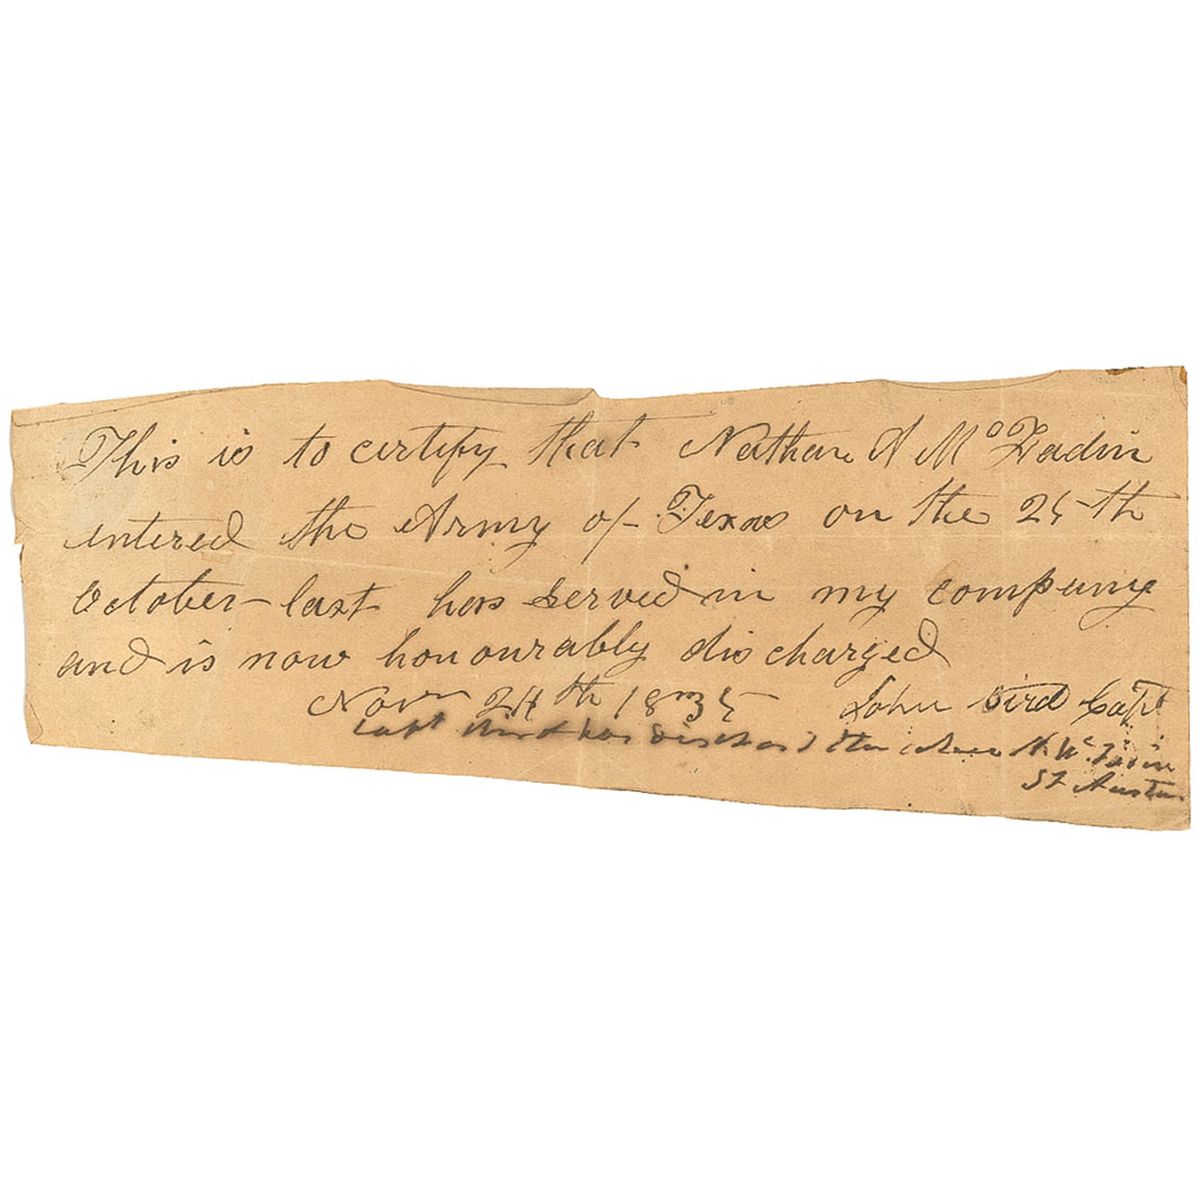 This is to certify that Nathan A McFadin
entered the Army of Texas on the 25th
October last has served in my company
and is now honourably discharged
Novr 24th 1835 John Bird Capt
Capt Bird has discharged the above N. Mc
SF Austin